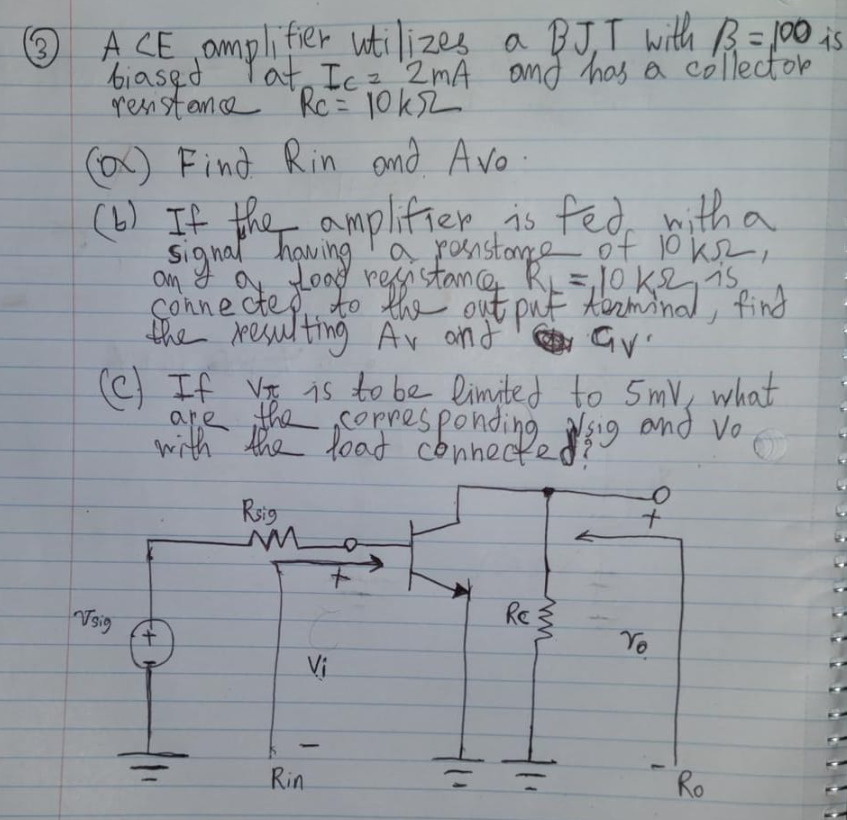 (3) A CE amplifier utilizes a BJT with β = 100 is
biased at Ic = 2mA and has a collector
resistance Rc = 10kΩ
(a) Find Rin and Avo.
(b) If the amplifier is fed with a
signal having a resistance of 10 kΩ,
and a load resistance RL = 10 kΩ is
connected to the output terminal, find
the resulting Av and Gv.
(c) If Vπ is to be limited to 5mV, what
are the corresponding Vsig and Vo
with the load connected?
Rsig
+
+
Vsig
+
-
Rc
Vo
Vi
-
Rin
-
Ro